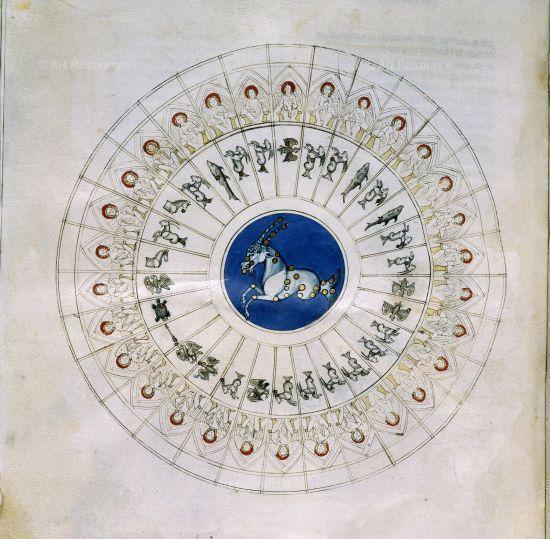 © Art Resource
© Art Resource